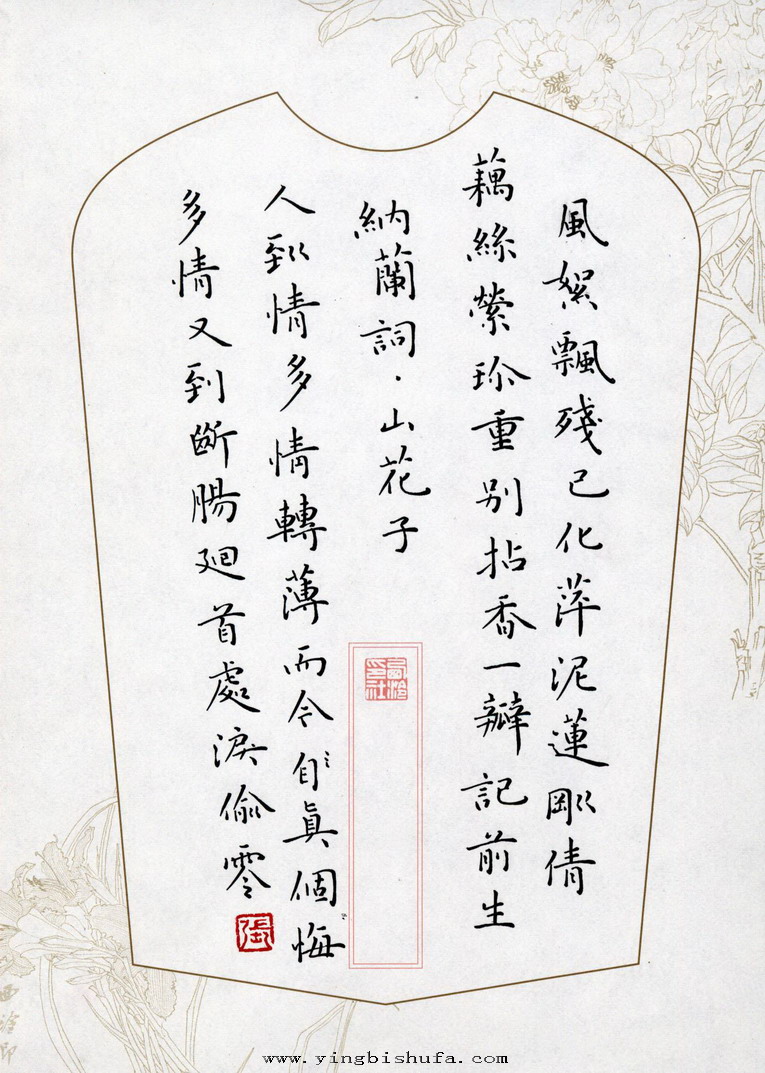 風絮飄殘已化萍泥蓮剛倩
藕絲縈珍重別拈香一瓣記前生
納蘭詞·山花子
人到情多情轉薄而今自真個悔
多情又到斷腸廻首處淚偷零
張
西泠印社
www.yingbishufa.com